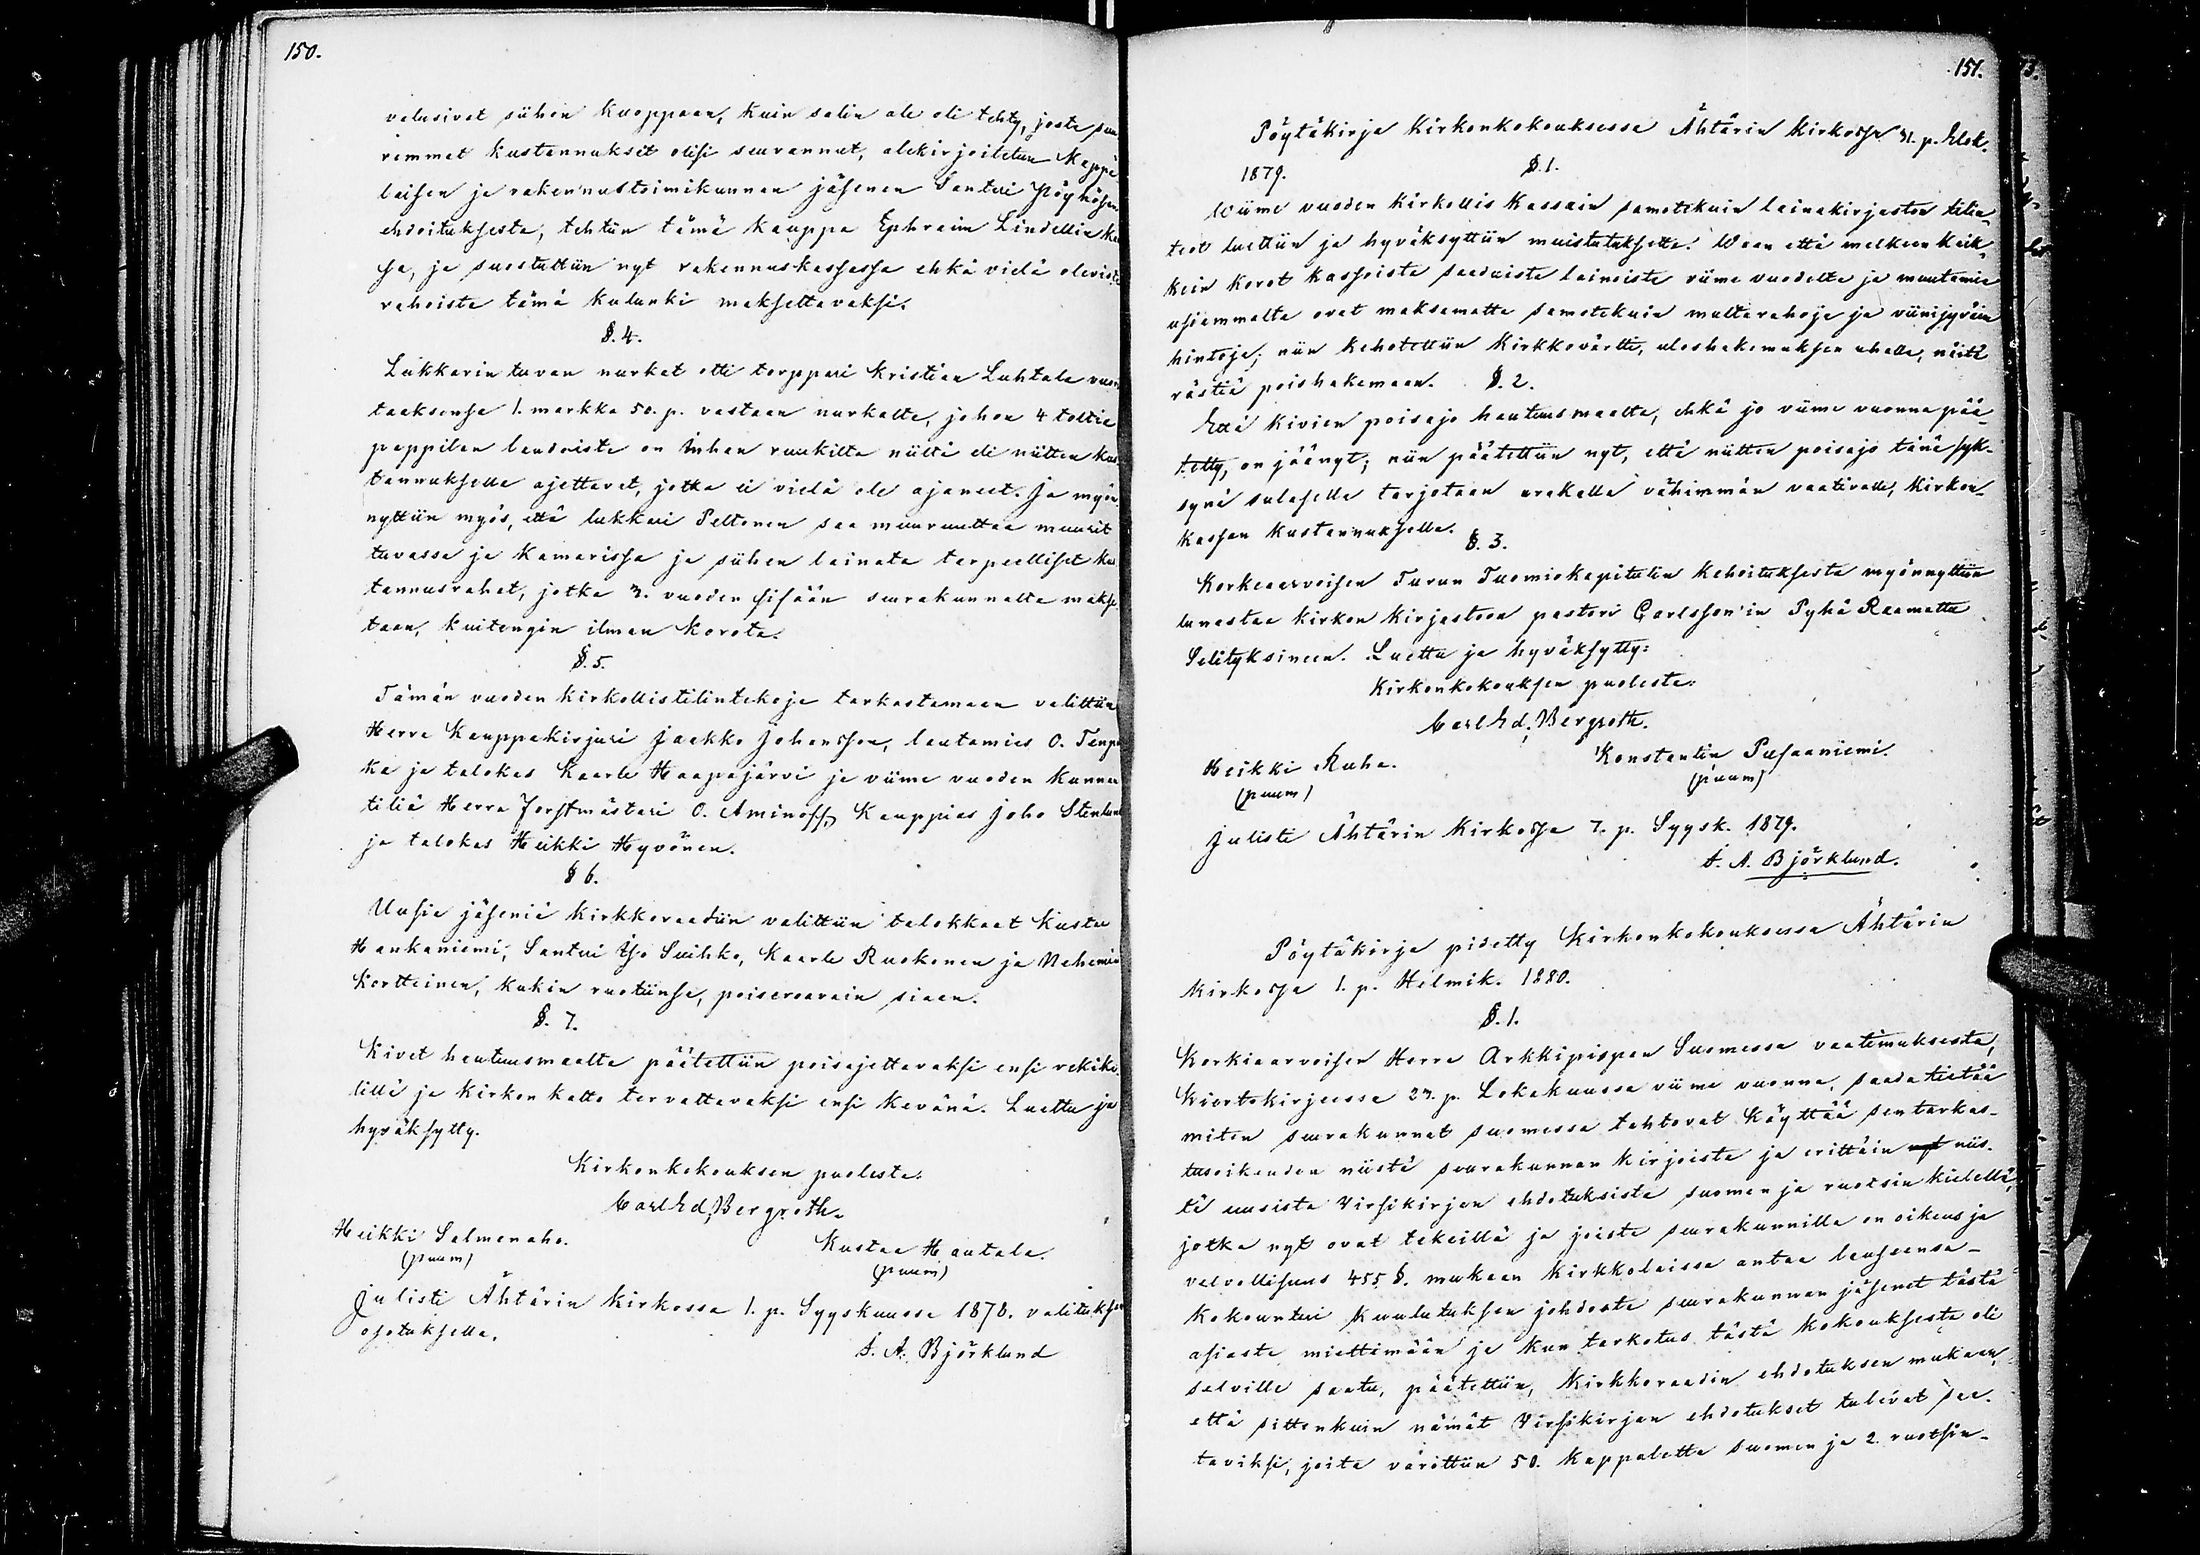 150.
valusivat siihen kuoppaan, kuin salin ale oli tehty, josta suu
remmat kustannukset olisi seurannut, alekirjoitetun Kappa
laisen ja rakennustoimikunnan jäsenen Santeri Pöyhösen
ehdoituksesta, tehtiin tämä kauppa Ephraim Lindellin ka
sa, ja suostuttiin nyt rakennuskassassa ehkä vielä olevista
rahoista tämä kalunki maksettavaksi.
§. 4.
Lukkarin tuvan nurkat otti torppari Kristian Luhtala
taaksensa 1. markka 50. p. vastaan nurkalta, johon 4 tolttia
pappilan laudoista on Inhan ruukilta niiltä eli niitten kus
tannukselle ajettavat, jotka ei vielä ole ajaneet. Ja myön
nyttiin myös, että lukkari Peltonen saa muurauttaa muurit
tuvassa ja kamarissa ja siihen lainata tarpeelliset kus
tannusrahat, jotka 3. vuoden sisään seurakunnalta makse
taan, kuitengin ilman korota.
§. 5.
Tämän vuoden kirkollistilintekoja tarkastamaan valittiin
Herra Kauppakirjuri Jaakko Johansson, lautamies O. Tenpa
ka ja talokas Kaarle Haapajärvi ja viime vuoden kunnan
tiliä Herra Forstmästari O. Aminoff, Kauppias Joho Stenlund
ja talokas Heikki Hyvönen.
§ 6.
Uusia jäseniä kirkkoraadiin valittiin talokkaat Kustaa
Hankaniemi, Santeri Iso Suihko, Kaarle Ruokonen ja Nehemia
Kortteinen, kukin ruotiinsa, poiseroavain siaan.
§. 7.
Kivet hautuusmaalta päätettiin poisajettavaksi ensi rekike
lillä ja kirkon katto tervattavaksi ensi kevänä. Luettu ja
hyväksytty.
Kirkonkokouksen puolesta.
Carl Ed. Bergroth.
Heikki Salmenaho.
(puum)
Kustaa Hautala.
(puum)
Julisti Ähtärin kirkossa 1. p. Syyskuussa 1878. valituksen
osotuksella.
S. A. Björklund
151.
Pöytäkirja Kirkonkokouksessa Ähtärin kirkossa 31. p. Elok.
1879.
§. 1.
Wiime vuoden kirkollis kassain samotekuin lainakirjaston tilin
teot luettiin ja hyväksyttiin muistutuksetta. Waan että melkein kaik
kein korot kassoista saaduista lainoista viime vuodelta ja muutamia
usiammalta ovat maksamatta samotekuin multarahoja ja viinijyväin
hintoja; niin kehotettiin Kirkkovärtti, uloshakemuksen uhalla, näitä
rästiä poishakemaan. §. 2.
Että kivien poisajo hautuusmaalta, ehkä jo viime vuonna pää
tetty, on jäänyt; niin päätettiin nyt, että niitten poisajo tänä syk
synä sulasella tarjotaan urakalla vähimmän vaativalle, kirkon
kassan kustannuksella.
§. 3.
Korkiaarvoisen Turun Tuomiokapitulin kehoituksesta myönnyttiin
lunastaa kirkon kirjastoon pastori Carlsson'in Pyhä Raamattu
Selityksineen. Luettu ja hyväksytty:
Kirkonkokouksen puolesta:
Carl Ed. Bergroth.
Heikki Raha.
(puum)
Konstantin Pusaaniemi.
(puum)
Julisti Ähtärin kirkossa 7. p. Syysk. 1879.
S. A. Björklund.
Pöytäkirja pidetty Kirkonkokouksessa Ähtärin
kirkossa 1. p. Helmik. 1880.
§. 1.
Korkiaarvoisen Herra Arkkipispan Suomessa vaatimuksesta,
Kiertokirjeessä 23. p. Lokakuussa viime vuonna, saada tietää
miten seurakunnat Suomessa tahtovat käyttää sen tarkas-
tusoikeuden niistä seurakunnan kirjoista ja erittäin niis-
tä uusista Virsikirjan ehdotuksista suomen ja ruotsin kielellä,
jotka nyt ovat tekeillä ja joista seurakunnilla on oikeus ja
velvollisuus 455 §. mukaan Kirkkolaissa antaa lausunsa-
Kokountui kuulutuksen johdosta seurakunnan jäsenet tästä
asiasta miettimään ja kun tarkotus tästä kokouksesta oli
selville saatu, päätettiin, Kirkkoraadin ehdotuksen mukaan,
että sittenkuin nämät Virsikirjan ehdotukset tulevat saa-
taviksi, joita värättiin 50. kappaletta suomen ja 2 ruotsin-